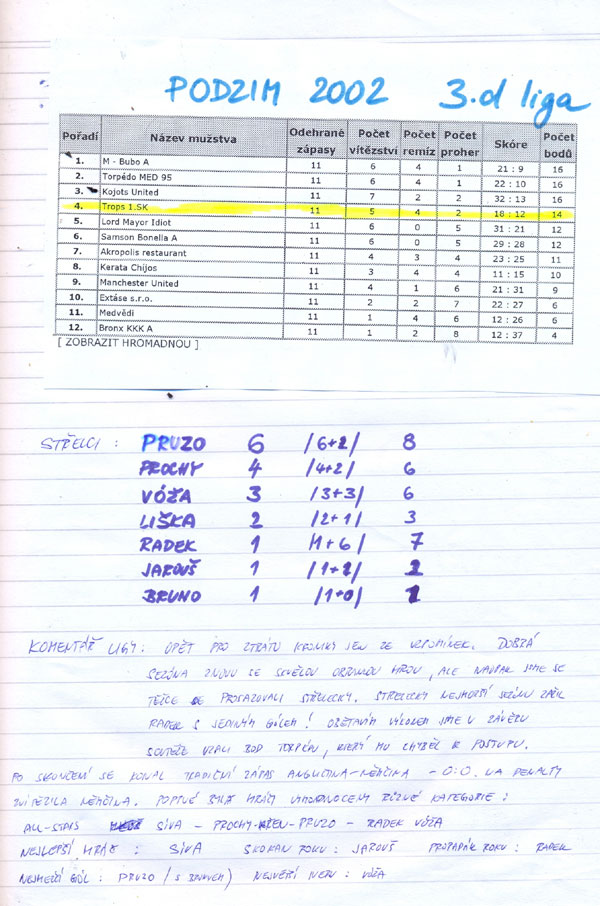 PODZIM 2002 3.d liga
Pořadí Název mužstva Odehrané zápasy Počet vítězství Počet remíz Počet proher Skóre Počet bodů
1. M - Bubo A 11 6 4 1 21 : 9 16
2. Torpédo MED 95 11 6 4 1 22 : 10 16
3. Kojots United 11 7 2 2 32 : 13 16
4. Trops 1.SK 11 5 4 2 18 : 12 14
5. Lord Mayor Idiot 11 6 0 5 31 : 21 12
6. Samson Bonella A 11 6 0 5 29 : 28 12
7. Akropolis restaurant 11 4 3 4 23 : 25 11
8. Kerata Chijos 11 3 4 4 11 : 15 10
9. Manchester United 11 4 1 6 21 : 31 9
10. Extáse s.r.o. 11 2 2 7 22 : 27 6
11. Medvědi 11 1 4 6 12 : 26 6
12. Bronx KKK A 11 1 2 8 12 : 37 4
[ ZOBRAZIT HROMADNOU ]
STŘELCI : PRUZO 6 /6+2/ 8
PROCHY 4 /4+2/ 6
VÓŽA 3 /3+3/ 6
LIŠKA 2 /2+1/ 3
RADEK 1 /1+6/ 7
JAROUŠ 1 /1+1/ 2
BRUNO 1 /1+0/ 1
KOMENTÁŘ LIGY : OPĚT PRO ZTRÁTU KRONIKY JEN ZE VZPOMÍNEK. DOBRÁ
SEZÓNA ZNOVU SE SKVĚLOU OBRANNOU HROU, ALE NAOPAK JSME SE
TĚŽCE PROSAZOVALI STŘELECKY. STŘELECKY NEJHORŠÍ SEZÓNU ZAŽIL
RADEK S JEDINÝM GÓLEM! OBĚTAVÝM VÝKONEM JSME V ZÁVĚRU
SOUTĚŽE VZALI BOD TORPÉDU, KTERÝ MU CHYBĚL K POSTUPU.
PO SKONČENÍ SE KONAL TRADIČNÍ ZÁPAS ANGLIČTINA-NĚMČINA - 0:0. NA PENALTY
ZVÍTĚZILA NĚMČINA. POPRVÉ BYLI HRÁČI VYHODNOCENY RŮZNÉ KATEGORIE :
ALL-STARS SÍVA - PROCHY - - PRUZO - RADEK VÓŽA
NEJLEPŠÍ HRÁČ : SÍVA SKOKAN ROKU : JAROUŠ PROPADÁK ROKU : RADEK
NEJHEZČÍ GÓL : PRUZO /S / NEJVĚTŠÍ : VÓŽA